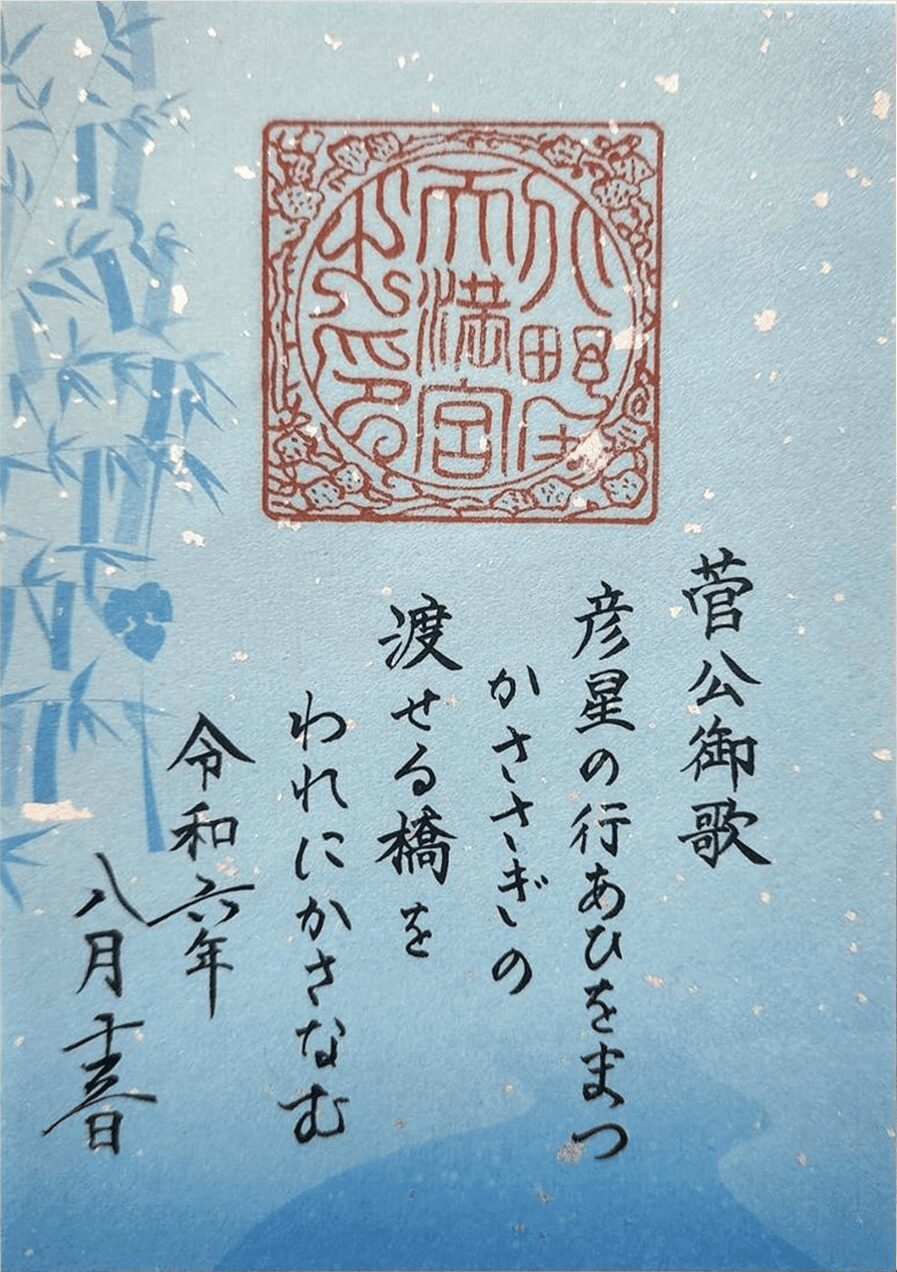 天満宮
菅公御歌
彦星の行あひをまつ
かささぎの
渡せる橋を
われにかさなむ
令和六年
八月